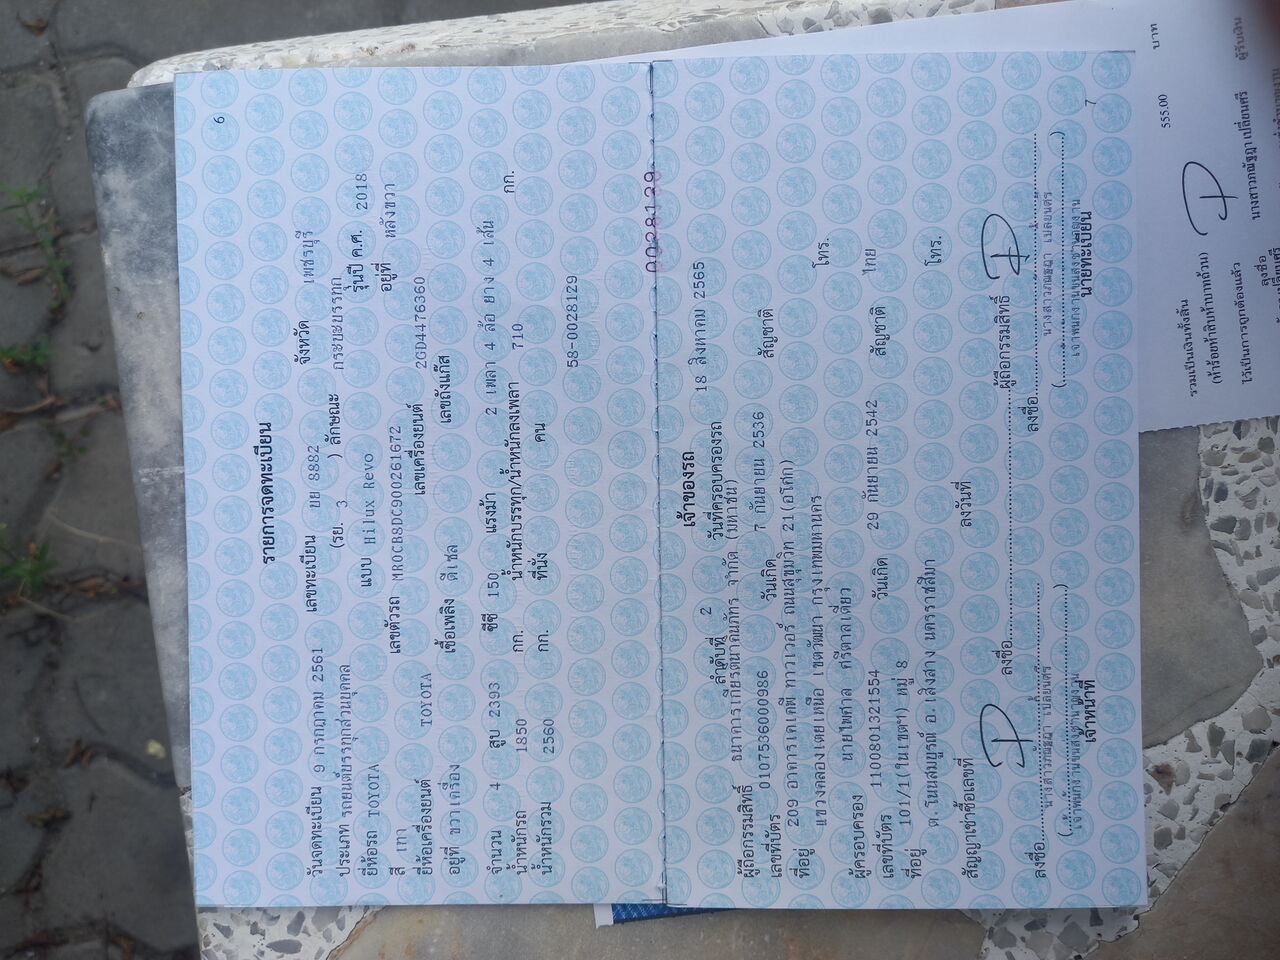 6
รายการจดทะเบียน
วันจดทะเบียน 9 กรกฎาคม 2561 เลขทะเบียน ยย 8882 จังหวัด เพชรบุรี
ประเภท รถยนต์บรรทุกส่วนบุคคล (รย. 3 ) ลักษณะ กระบะบรรทุก
ยี่ห้อรถ TOYOTA แบบ Hilux Revo รุ่นปี ค.ศ. 2018
สี เทา เลขตัวรถ MR0CB8DC900261672 อยู่ที่ หลังขวา
ยี่ห้อเครื่องยนต์ TOYOTA เลขเครื่องยนต์ 2GD4476360
อยู่ที่ ขวาเครื่อง เชื้อเพลิง ดีเซล เลขถังแก๊ส
จำนวน 4 สูบ 2393 ซีซี 150 แรงม้า 2 เพลา 4 ล้อ ยาง 4 เส้น
น้ำหนักรถ 1850 กก. น้ำหนักบรรทุก/น้ำหนักลงเพลา 710 กก.
น้ำหนักรวม 2560 กก. ที่นั่ง คน
58-0028129
0028129
เจ้าของรถ
ลำดับที่ 2 วันที่ครอบครองรถ 18 สิงหาคม 2565
ผู้ถือกรรมสิทธิ์ ธนาคารเกียรตินาคินภัทร จำกัด (มหาชน)
เลขที่บัตร 0107536000986 วันเกิด 7 กันยายน 2536 สัญชาติ
ที่อยู่ 209 อาคารเคเคพี ทาวเวอร์ ถนนสุขุมวิท 21(อโศก)
แขวงคลองเตยเหนือ เขตวัฒนา กรุงเทพมหานคร โทร.
ผู้ครอบครอง นายไพศาล ศรีตาลเดี่ยว
เลขที่บัตร 1100801321554 วันเกิด 29 กันยายน 2542 สัญชาติ ไทย
ที่อยู่ 101/1(ในเขตฯ) หมู่ 8
ต.โนนสมบูรณ์ อ.เสิงสาง นครราชสีมา โทร.
สัญญาเช่าซื้อเลขที่ ลงวันที่
ลงชื่อ ผู้ถือกรรมสิทธิ์
ลงชื่อ ลงชื่อ
นางสาวภณัฐฎา เปลี่ยนศรี นางสาวภณัฐฎา เปลี่ยนศรี
เจ้าพนักงานขนส่งชำนาญงาน เจ้าพนักงานขนส่งชำนาญงาน
เจ้าหน้าที่ นายทะเบียน
7
555.00 บาท
รวมเป็นเงินทั้งสิ้น
(ห้าร้อยห้าสิบห้าบาทถ้วน)
ไว้เป็นการถูกต้องแล้ว
ลงชื่อ ผู้รับเงิน
นางสาวภณัฐฎา เปลี่ยนศรี